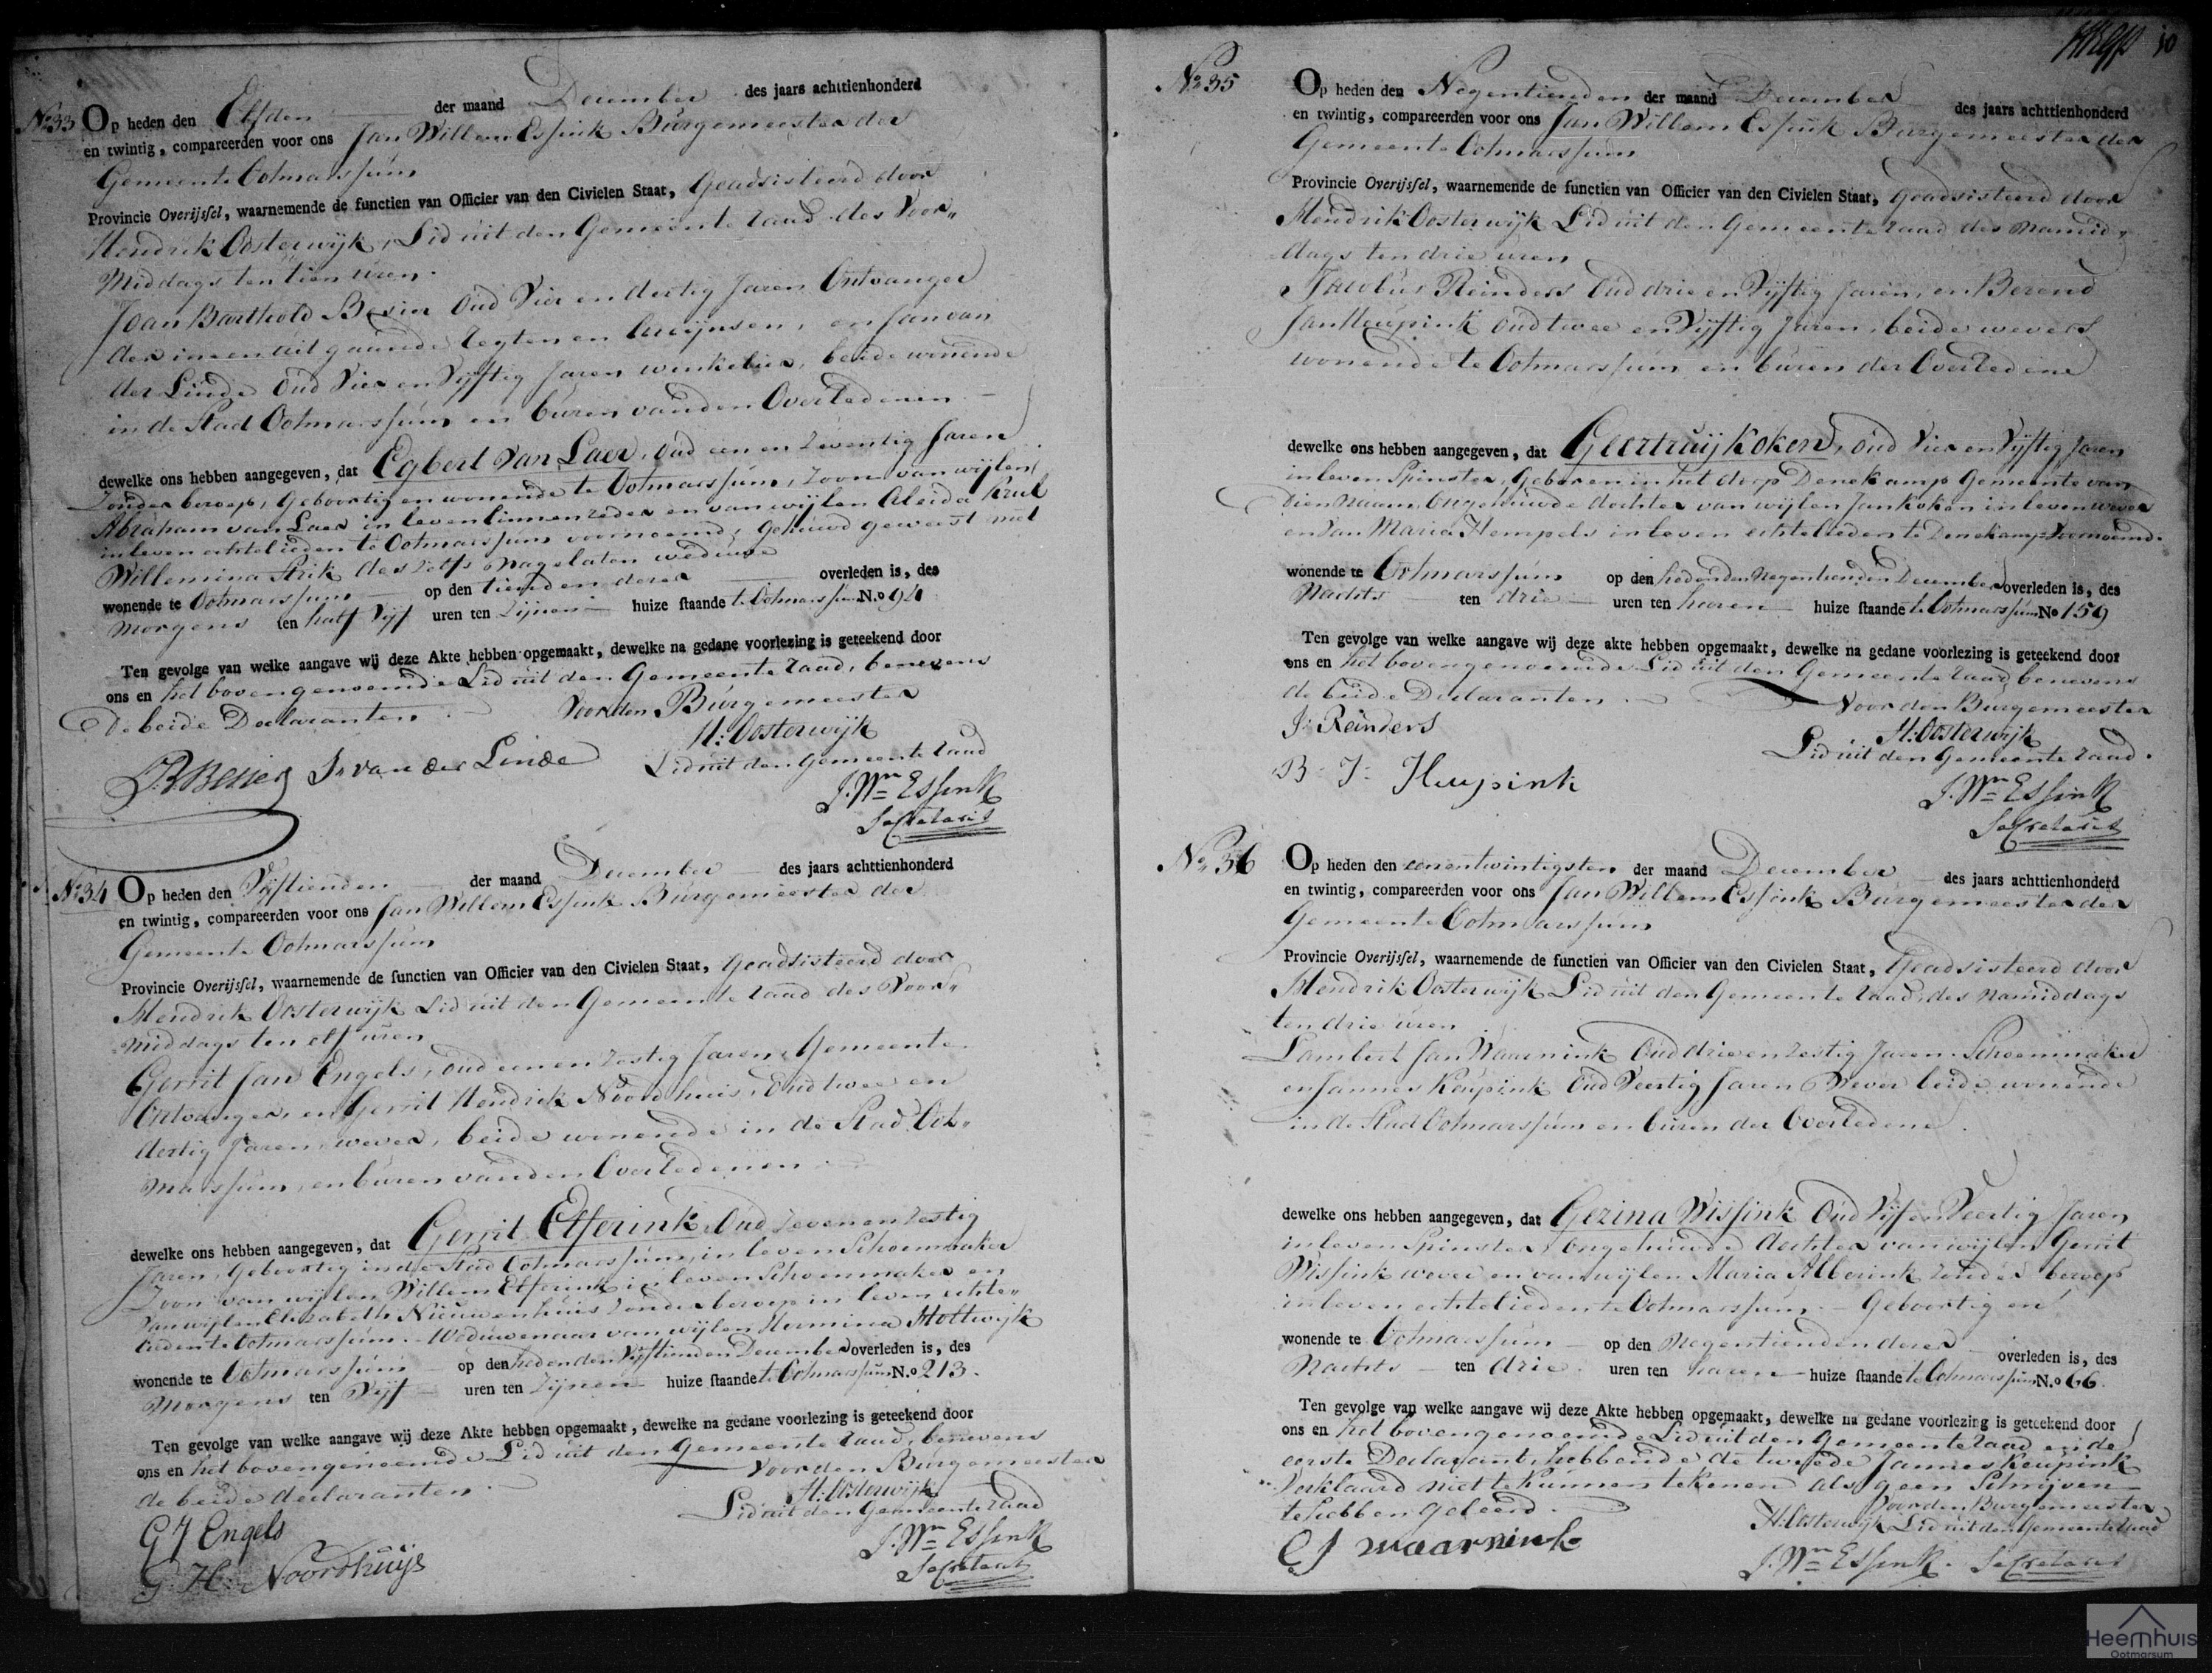 No 33 Op heden den Elfden der maand December des jaars achttienhonderd
en twintig, compareerden voor ons Jan Willem Essink Burgemeester der
Gemeente Ootmarssum
Provincie Overijssel, waarnemende de functien van Officier van den Civielen Staat, Geadsisteerd door
Hendrik Oosterwijk, Lid uit den Gemeente raad des Voor„
Middags ten tien uren.
Joan Barthold Besier Oud Vier en dertig Jaren Ontvanger
der in en uitgaande regten en accijnsen, en Jan van
der Linde Oud Vier en Vijftig Jaren winkelier, beide wonende
in de Stad Ootmarssum en buren van den Overledenen
dewelke ons hebben aangegeven, dat Egbert van Laer, oud een en zeventig Jaren
Zonder beroep, Geboortig en wonende te Ootmarssum, Zoon van wijlen
Abraham van Laer in leven linnenreder en van wijlen Aleida Krul
in leven echtelieden te Ootmarssum voornoemd, gehuwd geweest met
Willemina Strik deszelfs nagelaten weduwe
wonende te Ootmarssum op den tienden dezer overleden is, des
Morgens ten half Vijf uren ten Zijnen huize staande te Ootmarssum N.o 94
Ten gevolge van welke aangave wij deze Akte hebben opgemaakt, dewelke na gedane voorlezing is geteekend door
ons en het bovengenoemde Lid uit den Gemeente raad, benevens
de beide Declaranten. Voor den Burgemeester
H: Oosterwijk
Lid uit den Gemeente raad
JB Besier J. van der Linde
J. Wm Essink
Secretaris
No 34 Op heden den Vijftienden der maand December des jaars achttienhonderd
en twintig, compareerden voor ons Jan Willem Essink Burgemeester der
Gemeente Ootmarssum
Provincie Overijssel, waarnemende de functien van Officier van den Civielen Staat, Geadsisteerd door
Hendrik Oosterwijk Lid uit den Gemeente raad des Voor„
middags ten elf uren
Gerrit Jan Engels, oud een en zestig Jaren, Gemeente
Ontvanger, en Gerrit Hendrik Noordhuis, Oud twee en
dertig Jaren wever, beide wonende in de Stad Oot„
marssum, en buren van den Overledenen
dewelke ons hebben aangegeven, dat Gerrit Elferink Oud zeven en zestig
Jaren, Geboortig in de Stad Ootmarssum, in leven Schoenmaker
Zoon van wijlen Willem Elferink in leven Schoenmaker en
van wijlen Elisabeth Nieuwenhuis zonder beroep in leven echte„
lieden te Ootmarssum. Weduwenaar van wijlen Hermina Holtwijk
wonende te Ootmarssum op den heden den Vijftienden December overleden is, des
Morgens ten Vijf uren ten Zijnen huize staande te Ootmarssum N.o 213.
Ten gevolge van welke aangave wij deze Akte hebben opgemaakt, dewelke na gedane voorlezing is geteekend door
ons en het bovengenoemde Lid uit den Gemeente raad, benevens
de beide declaranten. Voor den Burgemeester
H: Oosterwijk
Lid uit den Gemeente raad
G J Engels
J. Wm Essink
G. H: Noordhuijs
Secretaris
10
No 35 Op heden den Negentienden der maand December des jaars achttienhonderd
en twintig, compareerden voor ons Jan Willem Essink Burgemeester der
Gemeente Ootmarssum
Provincie Overijssel, waarnemende de functien van Officier van den Civielen Staat, Geadsisteerd door
Hendrik Oosterwijk Lid uit den Gemeente raad des namid„
dags ten drie uren
Jacobus Reinders Oud drie en Vijftig Jaren, en Berend
Jan Heupink oud twee en Vijftig Jaren, beide wevers
wonende te Ootmarssum en buren der Overledene
dewelke ons hebben aangegeven, dat Geertruij Koken, oud Vier en Vijftig Jaren
in leven Spinster, Geboren in het dorp Denekamp Gemeente van
dien Naam, Ongehuwde dochter van wijlen Jan Koken in leven wever
en van Maria Hempels in leven echtelieden te Denekamp voornoemd.
wonende te Ootmarssum op den heden den Negentienden December overleden is, des
Nachts ten drie uren ten haren huize staande te Ootmarssum No 159
Ten gevolge van welke aangave wij deze akte hebben opgemaakt, dewelke na gedane voorlezing is geteekend door
ons en het bovengenoemde Lid uit den Gemeente raad, benevens
de beide Declaranten. Voor den Burgemeester
J: Reinders
H: Oosterwijk
Lid uit den Gemeente raad.
B: J: Heupink
J. Wm Essink
Secretaris
No 36 Op heden den eenentwintigsten der maand December des jaars achttienhonderd
en twintig, compareerden voor ons Jan Willem Essink Burgemeester der
Gemeente Ootmarssum
Provincie Overijssel, waarnemende de functien van Officier van den Civielen Staat, Geadsisteerd door
Hendrik Oosterwijk Lid uit den Gemeente raad, des namiddags
ten drie uren
Lambert Jan Waarnink Oud drie en zestig Jaren Schoenmaker
en Jannes Keupink Oud Veertig Jaren Wever beide wonende
in de Stad Ootmarssum en buren der Overledene.
dewelke ons hebben aangegeven, dat Gezina Wissink Oud Vijf en Veertig Jaren
in leven Spinster, Ongehuwde dochter van wijlen Gerrit
Wissink wever en van wijlen Maria Alberink zonder beroep
in leven echtelieden te Ootmarssum. Geboortig en
wonende te Ootmarssum op den Negentienden dezer overleden is, des
Nachts ten drie uren ten haren huize staande te Ootmarssum N.o 66.
Ten gevolge van welke aangave wij deze Akte hebben opgemaakt, dewelke na gedane voorlezing is geteekend door
ons en het bovengenoemde Lid uit den Gemeente raad en de
eerste Declarant, hebbende de tweede Jannes Keupink
Verklaard niet te kunnen tekenen als geen Schrijven
te hebben geleerd. Voor den Burgemeester
H: Oosterwijk Lid uit den Gemeente raad
waarnink
J. Wm Essink. Secretaris
Heemhuis
Ootmarsum